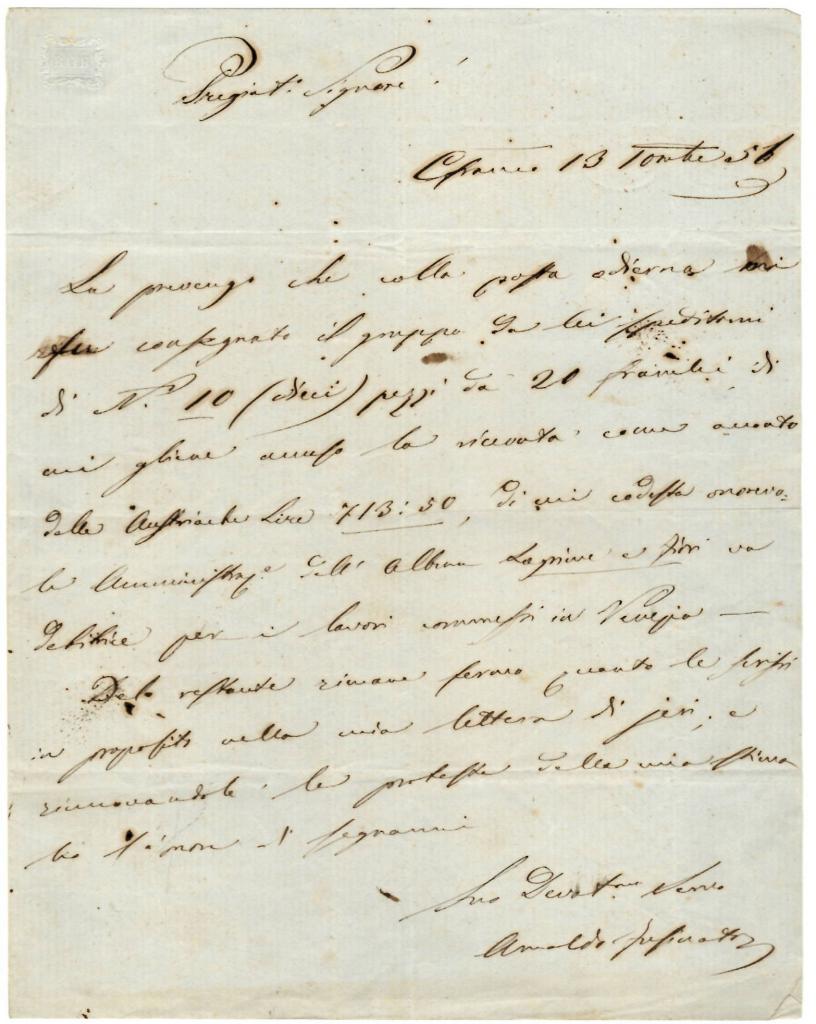 Pregiat.º Signore!
Cfranco 13 56
La prevengo che colla posta odierna mi
fu consegnato il gruppo da lei speditomi
di N.º 10 (dieci) pezzi da 20 franchi, di
cui gliene accuso la ricevuta come acconto
delle Austriache Lire 713:50, di cui codesta onorevo=
le Amministraz.e dell' Album Lagrime e fiori va
debitrice per i lavori commessi in Venezia —
Del restante rimane fermo quanto le scrissi
in proposito nella mia lettera di jeri, e
rinnovandole le proteste della mia stima
ho l'onore segnarmi
Suo Devot.mo Servo
Arnaldo Fusinato